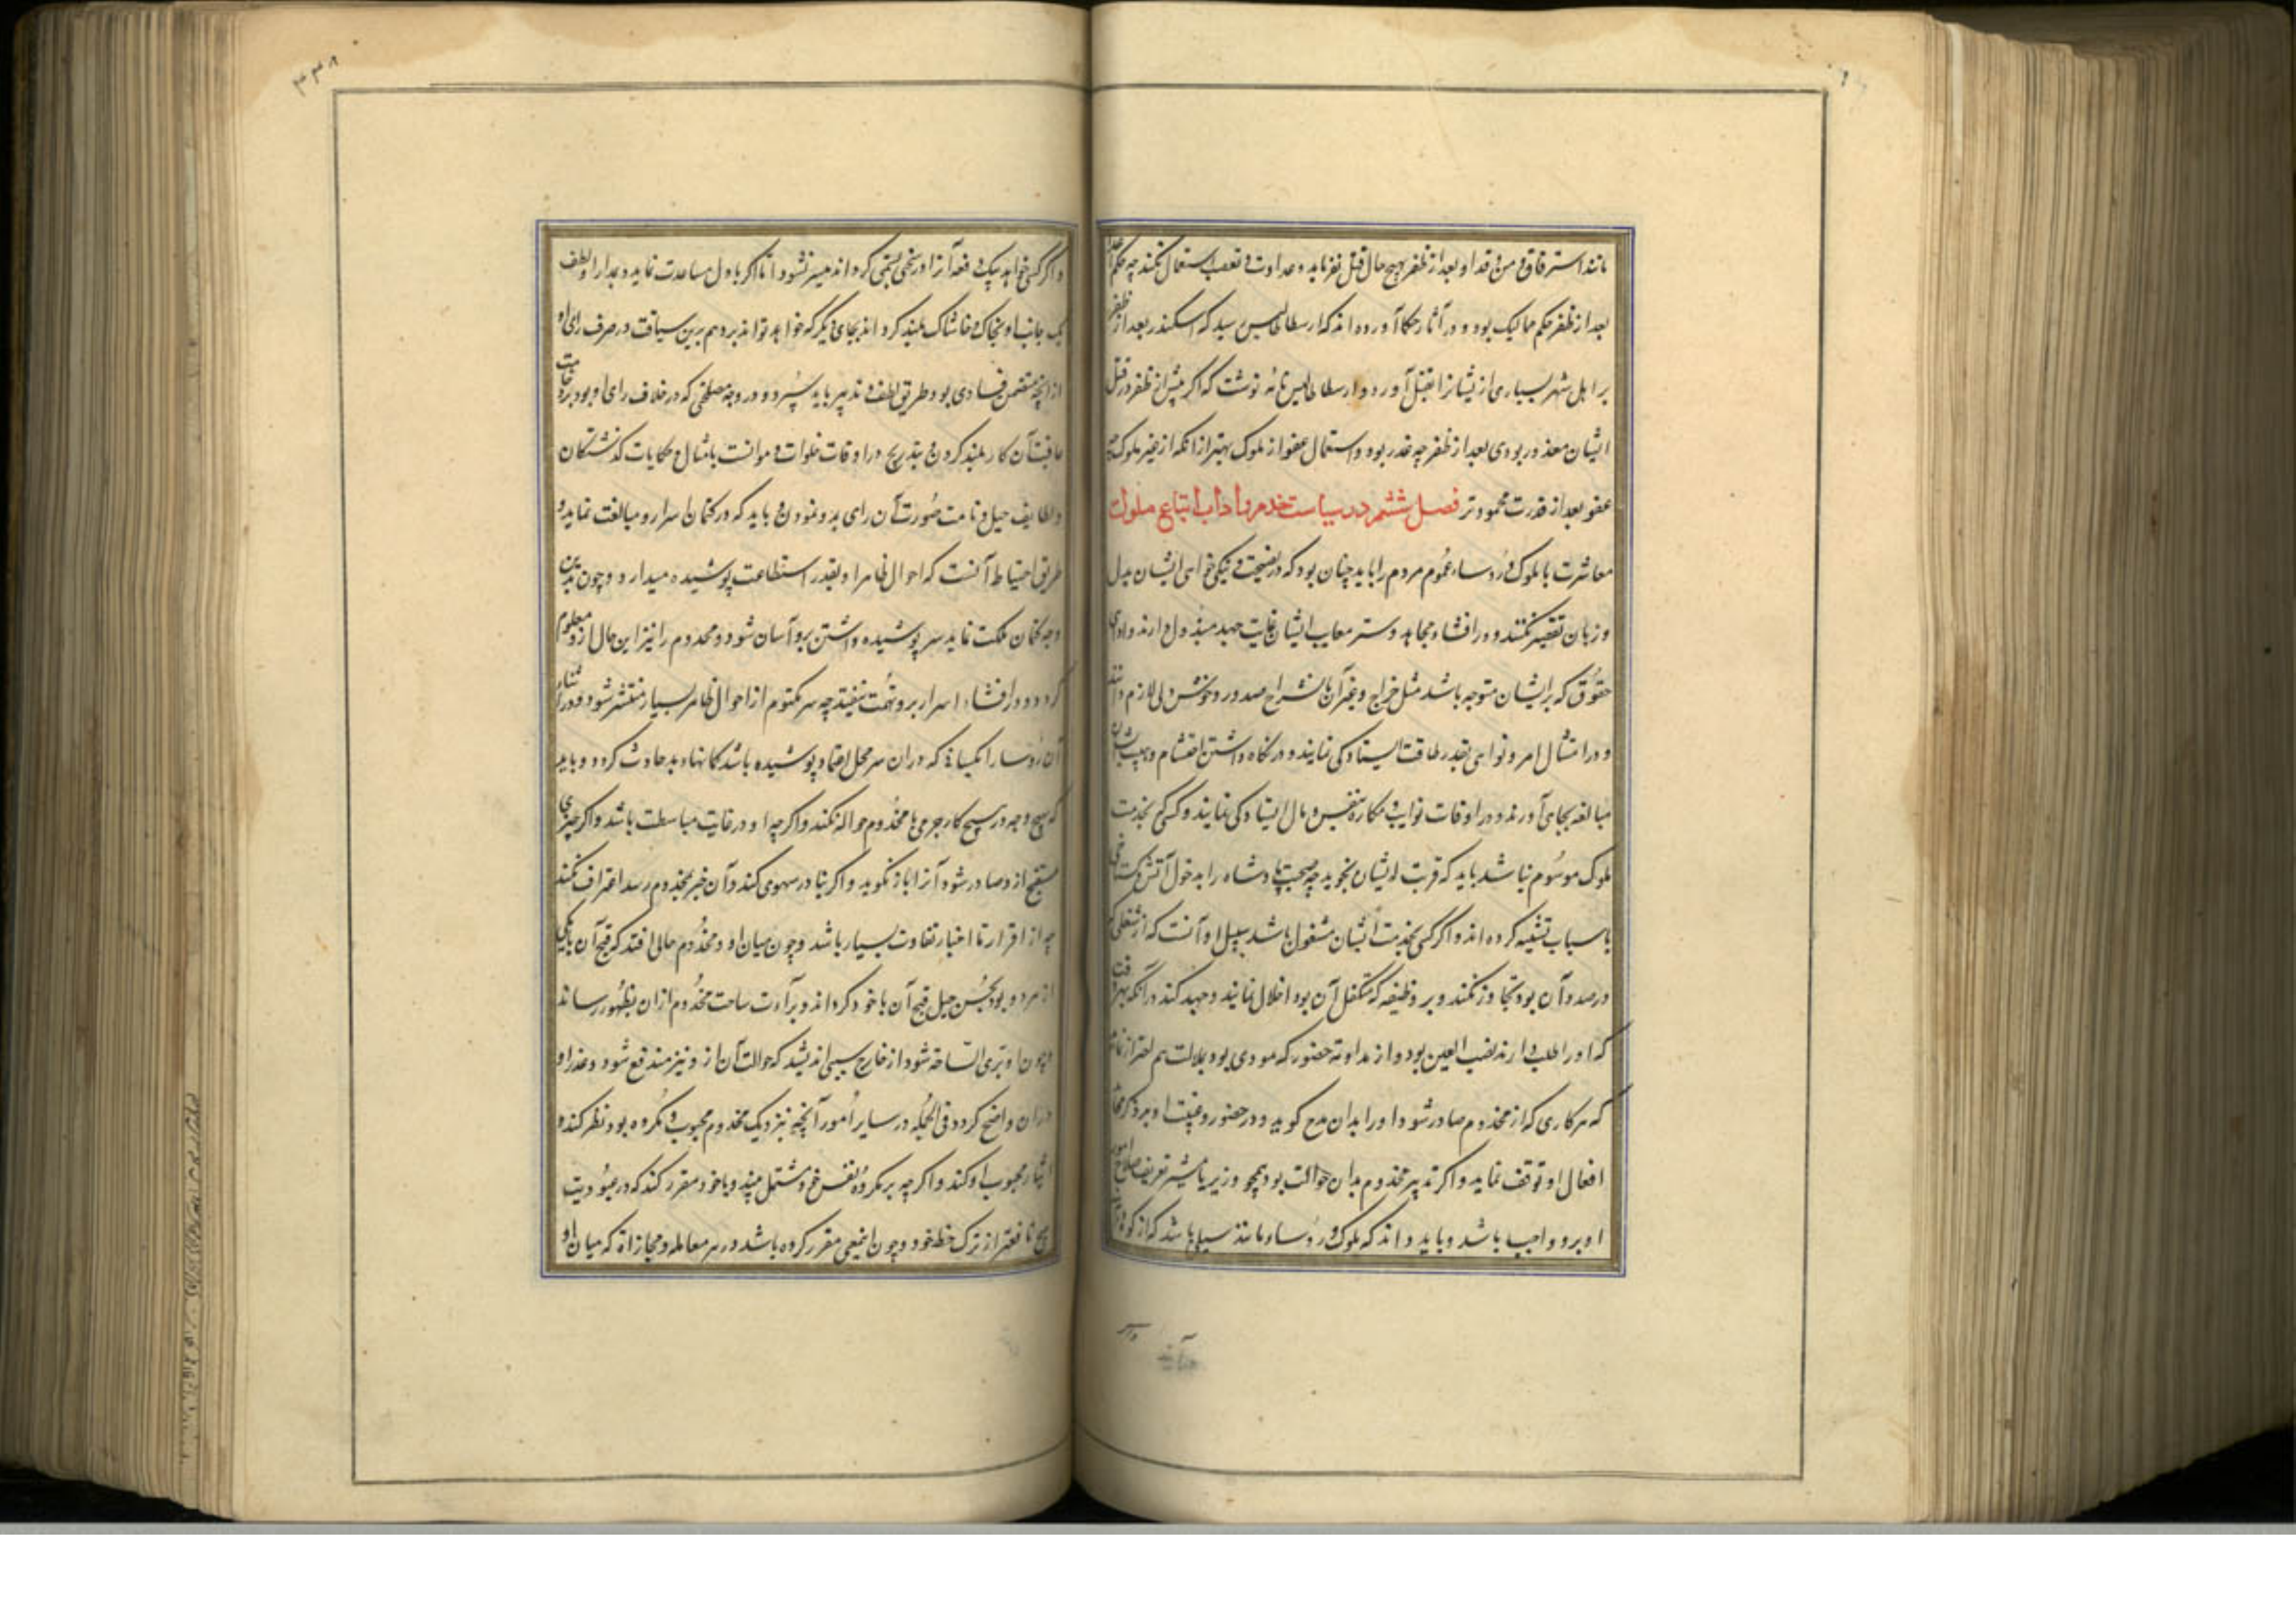 مانند استرقاق و من و فدا و بعد از ظفر بهیچ حال قتل نفرماید و عداوت و تعصب استعمال نکند چه حکم اعدا
بعد از ظفر حکم ممالیک بود و در آثار حکما آورده اند که ارسطاطالیس رسید که اسکندر بعد از ظفر
بر اهل شهر بسیاری از یشانرا بقتل آورد و ارسطاطالیس نامه نوشت که اگر پیش از ظفر در قتل
ایشان معذور بودی بعد از ظفر چه عذر بود و استعمال عفو از ملوک بهتر از انکه از غیر ملوک چه
عفو بعد از قدرت محمودتر فصل ششم در سیاست خدم و آداب اتباع ملوک
معاشرت با ملوک و رؤساء عموم مردم را باید چنان بود که در نصیحت و نیکی خواهی ایشان بدل
و زبان تقصیر نکنند و در افشاء محامد و ستر معایب ایشان غایت جهد مبذول دارند و ادای
حقوق که بر ایشان متوجه باشد مثل خراج و غیر آن بانشراح صدور و خوش دلی لازم دانند
و در امتثال امر و نواهی بقدر طاقت ایستادگی نمایند و در نگاه داشتن احتشام و هیبت ایشان
مبالغه بجای آورند و در اوقات نوایب و مکاره بنفس و مال ایستادگی نمایند و کسی که بخدمت
ملوک موسوم نباشد باید که قربت ایشان نجوید چه صحبت پادشاه را بدخول آتش و گستاخی
با سباع تشبیه کرده اند و اگر کسی بخدمت ایشان مشغول باشد سبیل او آنست که از شغلی که
در صدد آن بود تجاوز نکند و بر وظیفه که متکفل آن بود اخلال ننماید و جهد کند در آنکه بهر وقت
که او را طلب دارند نصب العین بود و از مداومت حضور که مودی بود بملالت هم احتراز نماید
که هر کاری که از مخدوم صادر شود او را بدان مدح گوید و در حضور و غیبت او بر ذکر محاسن
افعال او توقف نماید و اگر تدبیر مخدوم بدان حوالت بود همچو وزیر یا مشیر تعریف صلاح امور
او برو واجب باشد و باید داند که ملوک و رؤساء مانند سیلی باشد که از کوه درآید
و اگر کسی خواهد بیک دفعه آنرا از سختی بسختی گرداند میسر نشود اما اگر باول مساعدت نماید و بمدارا و لطف
یک جانب او بخاک و خاشاک بلند کرداند بجای دیگر که خواهد تواند برد هم برین سیاقت در صرف رای او
از انچه متضمن فسادی بود طریق لطف و تدبیر باید سپرد و در وجه مصلحتی که در خلاف رای او بود
عاقبت آن کار بلند کردن و بتدریج در اوقات خلوات و موانست بامثال و حکایات گذشتگان
و لطایف حیل و نامت صورت آن رای بدو نمودن و باید که در کتمان اسرار و مبالغت نماید و
طریق احتیاط آنست که احوال ظاهر او بقدر استطاعت پوشیده میدارد و چون بدین
وجه کتمان ملکت نماید سر پوشیده داشتن برو آسان شود و مخدوم را نیز این حال ازو معلوم
گردد و در افشاء اسرار برو تهمت نیفتد چه سر مکتوم از احوال ظاهر بسیار منتشر شود و در اثناء
آن رؤسا را بکسانی که در آن سر محل اعتماد پوشیده باشد گمانها بد حادث گردد و باید
که بهیچ وجه در هیچ کار جرمی با مخدوم حواله نکند و اگر چه او در غایت مباسطت باشد و اگر چیزی
مستقبح ازو صادر شود آنرا باز نگوید و اگر بنادر سهوی کند و آن خبر بمخدوم رسد اعتراف نکند
چه از اقرار تا اخبار تفاوت بسیار باشد و چون میان او و مخدوم حالی افتد که قبح آن بیکی
از هر دو بود بحسن حیل قبح آن باخود گرداند و برآءت ساحت مخدوم از ان بظهور رساند
و چون او بری الساحه شود از خارج سببی اندیشد که حوالت آن از و نیز مندفع شود و عذر او
در ان واضح گردد فی الجمله در سایر امور آنچه بنزدیک مخدوم محبوب و مکروه بود نظر کند و
ایثار محبوب او کند و اگر چه بر مکروه نفس خود مشتمل بیند و باخود مقرر کند که در عبودیت
هیچ نافعتر از ترک حظ خود و چون این معنی مقرر کرده باشد در هر معامله و مجازاة که میان او